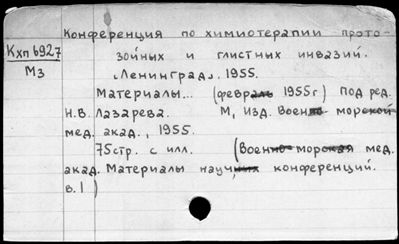 Конференция по химиотерапии прото-
Кхп 6927
зойных и глистных инвазий.
М3
„Ленинград“. 1955.
Материалы... (февраль 1955г) Под ред.
Н.В. Лазарева. М, Изд. Военно-морской
мед. акад., 1955.
75стр. с илл. (Военно-морская мед.
акад. Материалы научных конференций.
в.1)